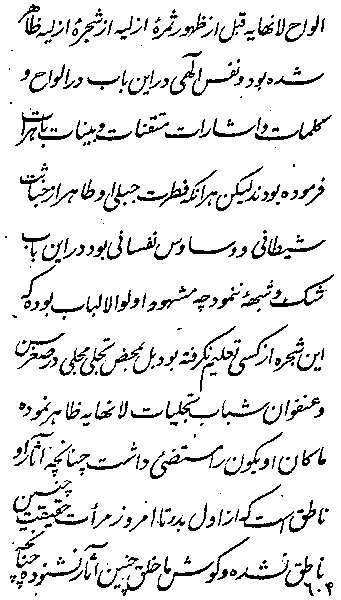 الواح لانهایه قبل از ظهور ثمرهٔ ازلیه از شجرهٔ ازلیه ظاهر
شده بود و نفس الهی در این باب در الواح و
کلمات و اشارات متقنات و بینات باهرات
فرموده بودند لیکن هر آنکه فطرت جبلی او طاهر از خباثت
شیطانی و وساوس نفسانی بود در این باب
شک و شبههٔ ننمود چه مشهود اولوا الالباب بوده که
این شجره از کسی تعلیم نگرفته بود بل بمحض تجلی مجلی در صغر سن
و عنفوان شباب تجلیات لانهایه ظاهر نموده
ماکان او یکون را مستضئ داشت چنانچه آثار او
ناطق است که از اول بدء تا امروز مرآت حقیقت چنین
ناطق نشده و گوش ما خلق چنین آثار نشنوده چنانچه
۶۰۴